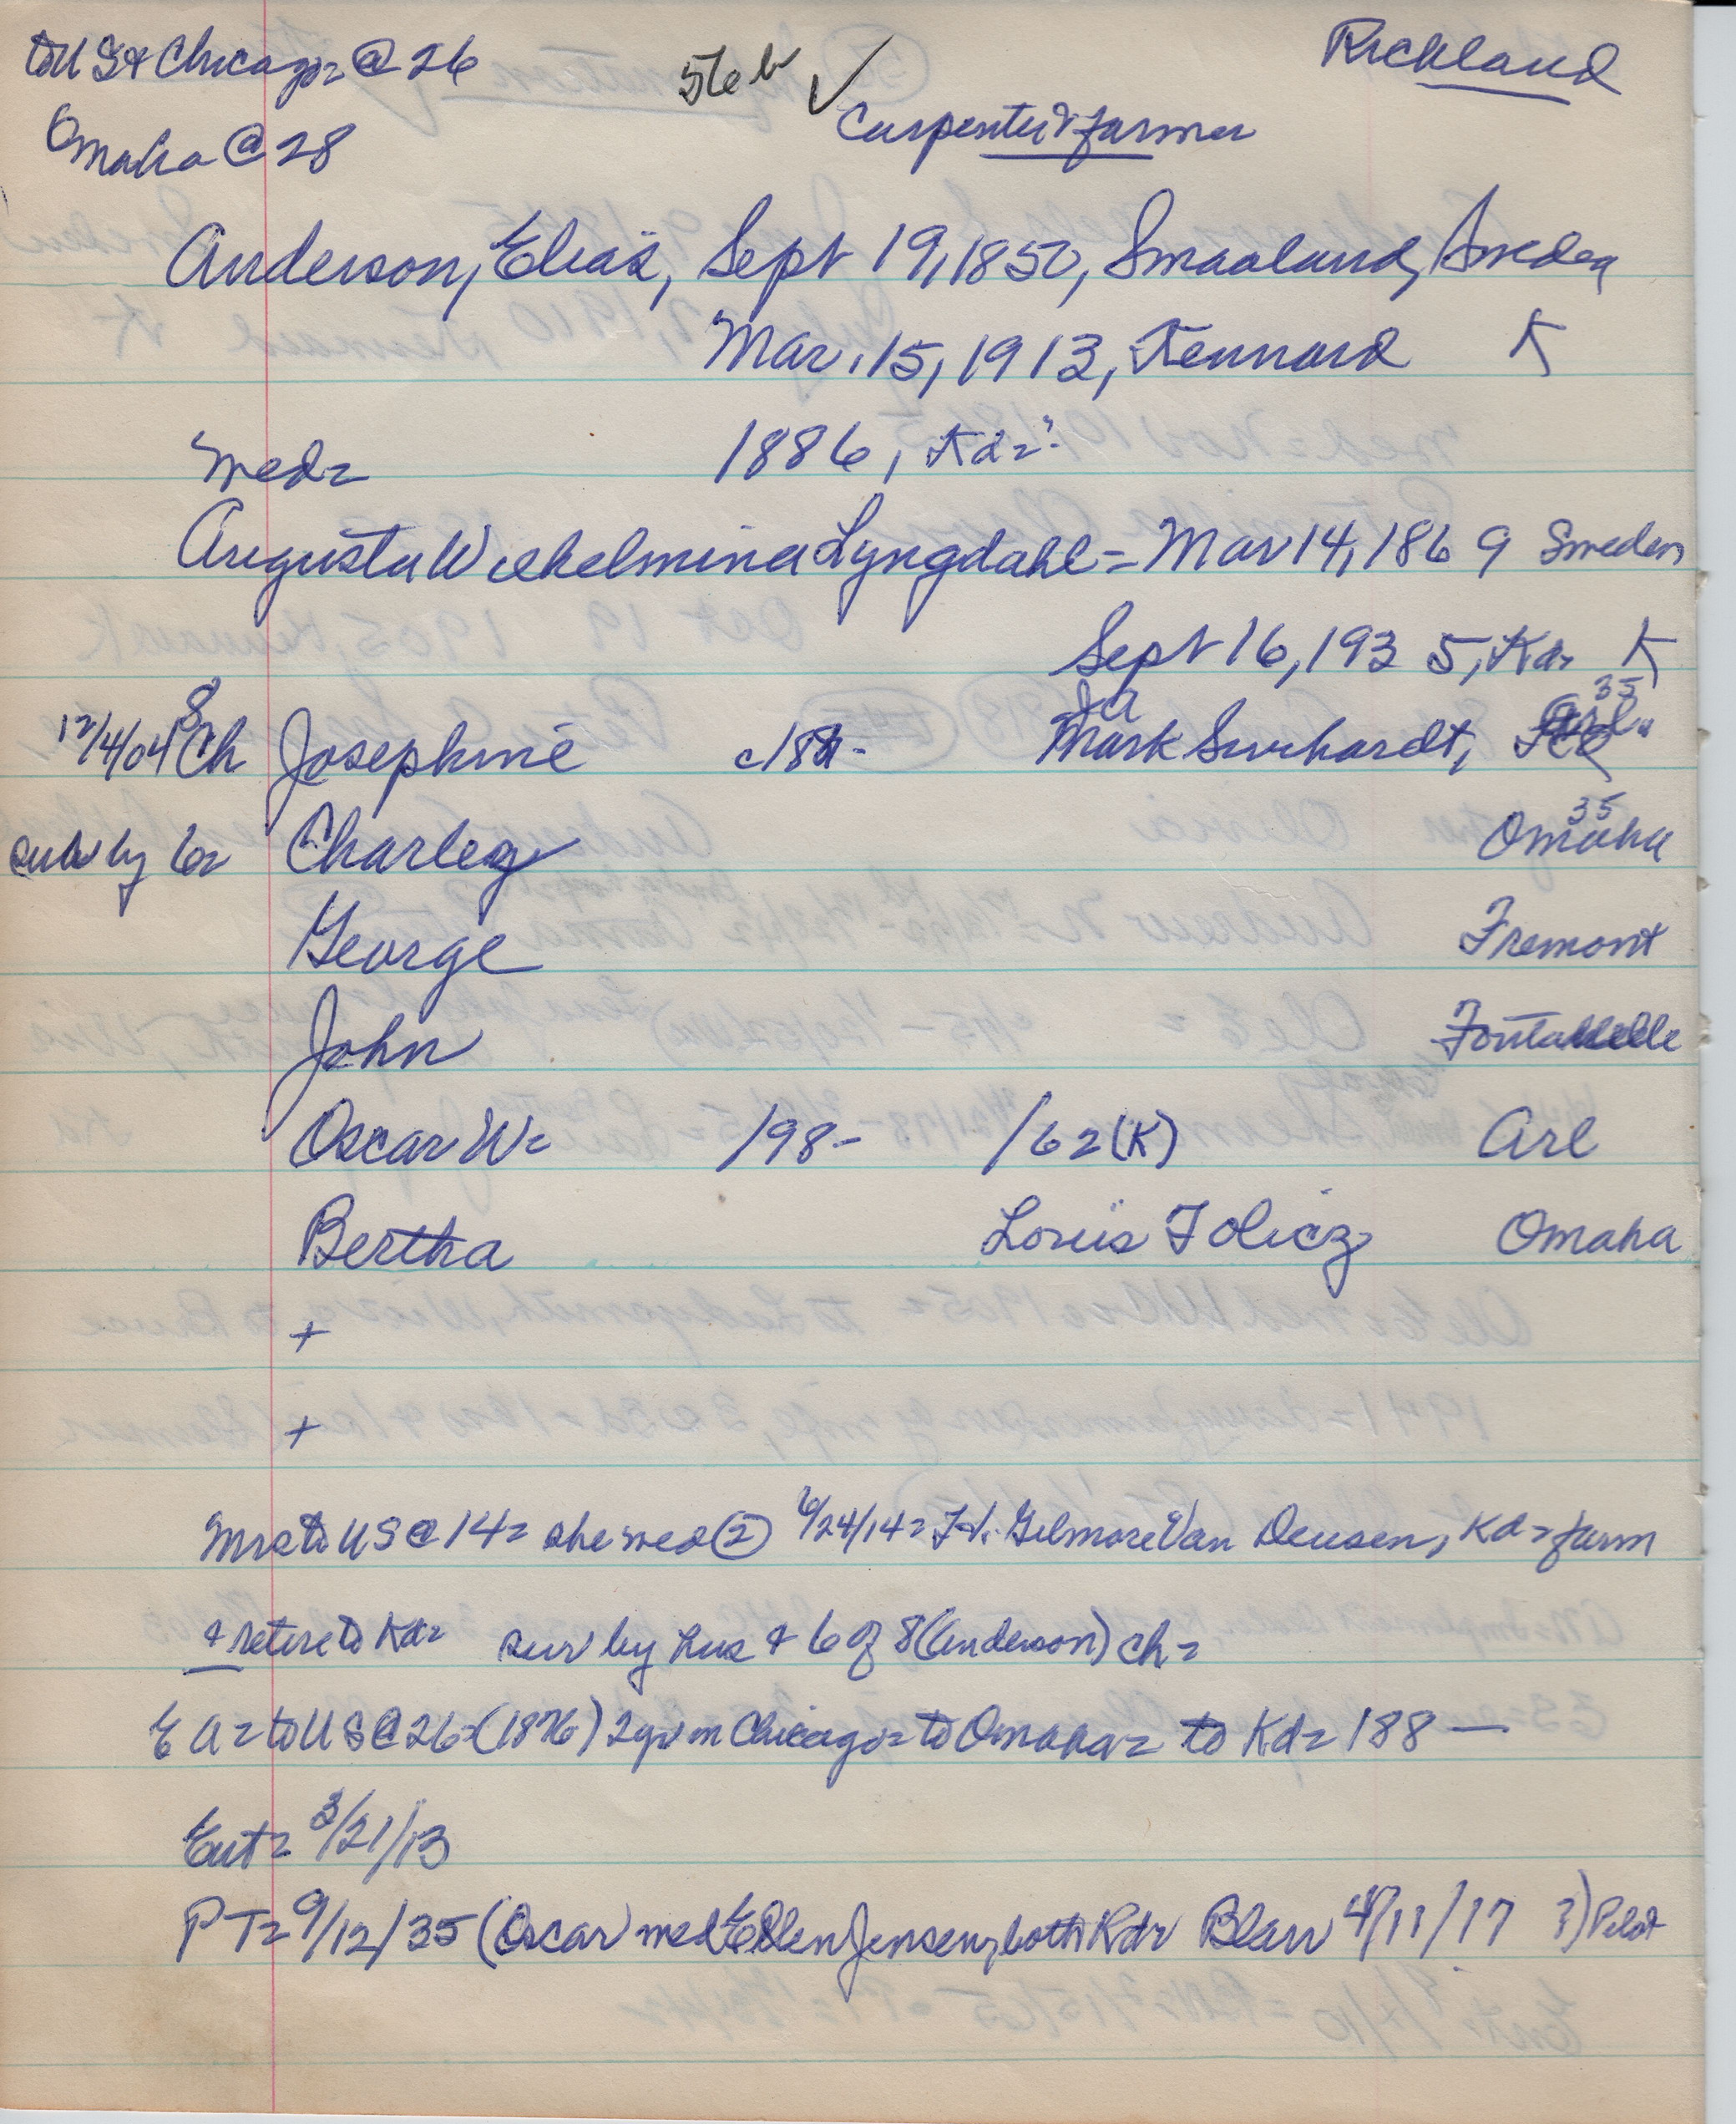 to US & Chicago = @ 26
Omaha @ 28
Richland
Carpenter & farmer
Anderson, Elias, Sept 19, 1850, Smaaland, Sweden
Mar. 15, 1913, Kennard K
med = 1886, Kd = ?
Augusta Wilhelmina Lyngdahl = Mar 14, 1869 Sweden
Sept 16, 1935, Kd = K
12/4/04 8 Ch Josephine Mark
sur by 6 = Charley Omaha 35
George Fremont
John Fontanelle
Oscar W = /98 - /62 (K) Arl
Bertha Louis Omaha
+
+
Mrs to US @ 14 = she med (2) 6/24/14 = Gilmore Van Deusen, Kd = farm
& retire to Kd = sur by hus & 6 of 8 (Anderson) ch =
E A = to US @ 26 = (1876) 2 yr in Chicago = to Omaha = to Kd = 188 —
Ent = 3/21/13
PT = 9/12/35 (Oscar med Ellen Jensen, both Kd = Blair 4/11/17 ?) Pilot